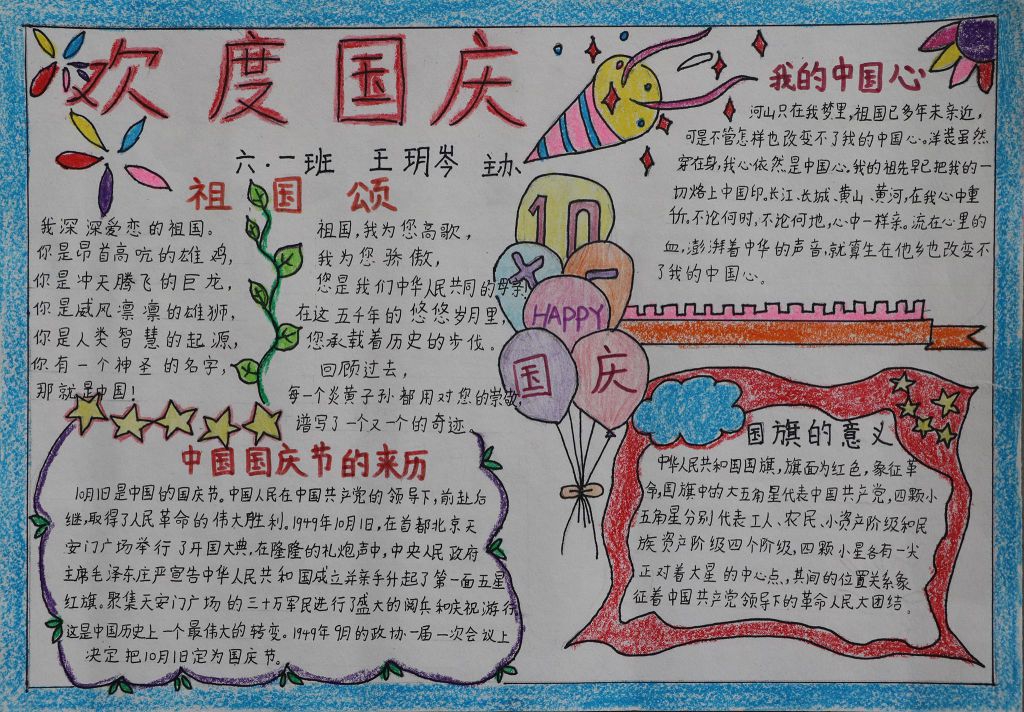 欢度国庆
六·一班 王玥岑 主办
祖国颂
我深深爱恋的祖国。
你是昂首高吭的雄鸡,
你是冲天腾飞的巨龙,
你是威风凛凛的雄狮,
你是人类智慧的起源,
你有一个神圣的名字,
那就是中国!
祖国,我为您高歌,
我为您骄傲,
您是我们中华人民共同的母亲!
在这五千年的悠悠岁月里,
您承载着历史的步伐。
回顾过去,
每一个炎黄子孙都用对您的崇敬,
谱写了一个又一个的奇迹。
10
×一
HAPPY
国庆
我的中国心
河山只在我梦里,祖国已多年未亲近,
可是不管怎样也改变不了我的中国心。洋装虽然
穿在身,我心依然是中国心。我的祖先早已把我的一
切烙上中国印。长江、长城、黄山、黄河,在我心中重
千斤,不论何时,不论何地,心中一样亲。流在心里的
血,澎湃着中华的声音,就算生在他乡也改变不
了我的中国心。
中国国庆节的来历
10月1日是中国的国庆节。中国人民在中国共产党的领导下,前赴后
继,取得了人民革命的伟大胜利。1949年10月1日,在首都北京天
安门广场举行了开国大典,在隆隆的礼炮声中,中央人民政府
主席毛泽东庄严宣告中华人民共和国成立并亲手升起了第一面五星
红旗。聚集天安门广场的三十万军民进行了盛大的阅兵和庆祝游行
这是中国历史上一个最伟大的转变。1949年9月的政协一届一次会议上
决定把10月1日定为国庆节。
国旗的意义
中华人民共和国国旗,旗面为红色,象征革
命,国旗中的大五角星代表中国共产党,四颗小
五角星分别代表工人、农民、小资产阶级和民
族资产阶级四个阶级,四颗小星各有一尖
正对着大星的中心点,其间的位置关系象
征着中国共产党领导下的革命人民大团结。